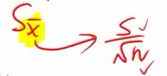 S x̄ → S / √n